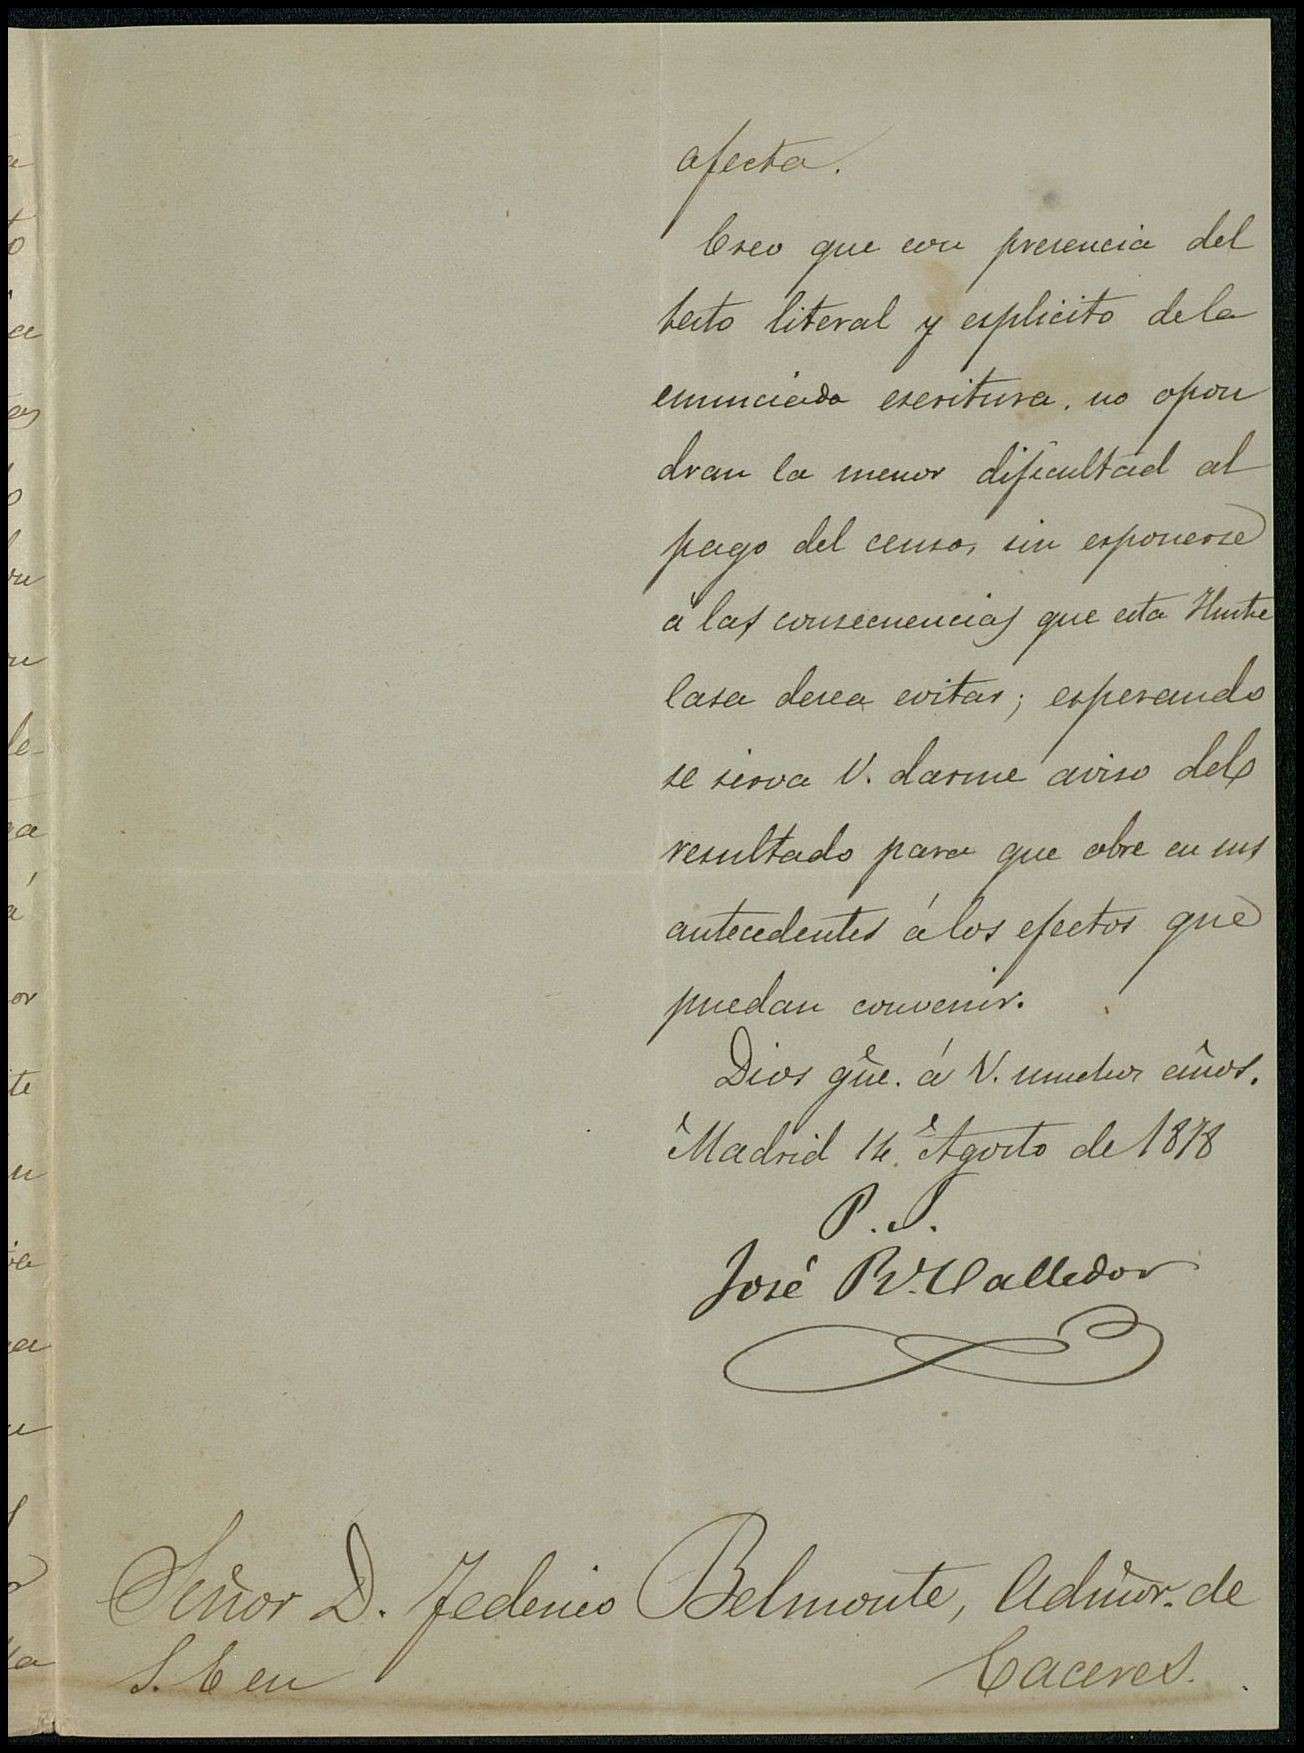 afecta.
Creo que con presencia del
testo literal y esplicito de la
enunciada escritura, no opon
dran la menor dificultad al
pago del censo, sin esponerse
á las consecuencias que esta Iltre
Casa desea evitar; esperando
se sirva V. darme aviso del
resultado para que obre en sus
antecedentes á los efectos que
puedan convenir.
Dios gûe. á V. muchos años.
Madrid 14 Agosto de 1878
José R. Valledor
Señor D. Federico Belmonte, Admôr. de
S. E en Caceres.